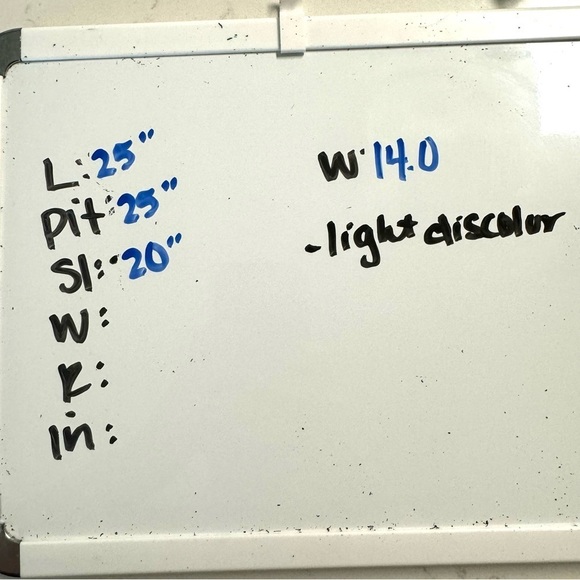 L: 25"
Pit: 25"
Sl: 20"
W:
R:
in:
W: 14.0
- light discolor